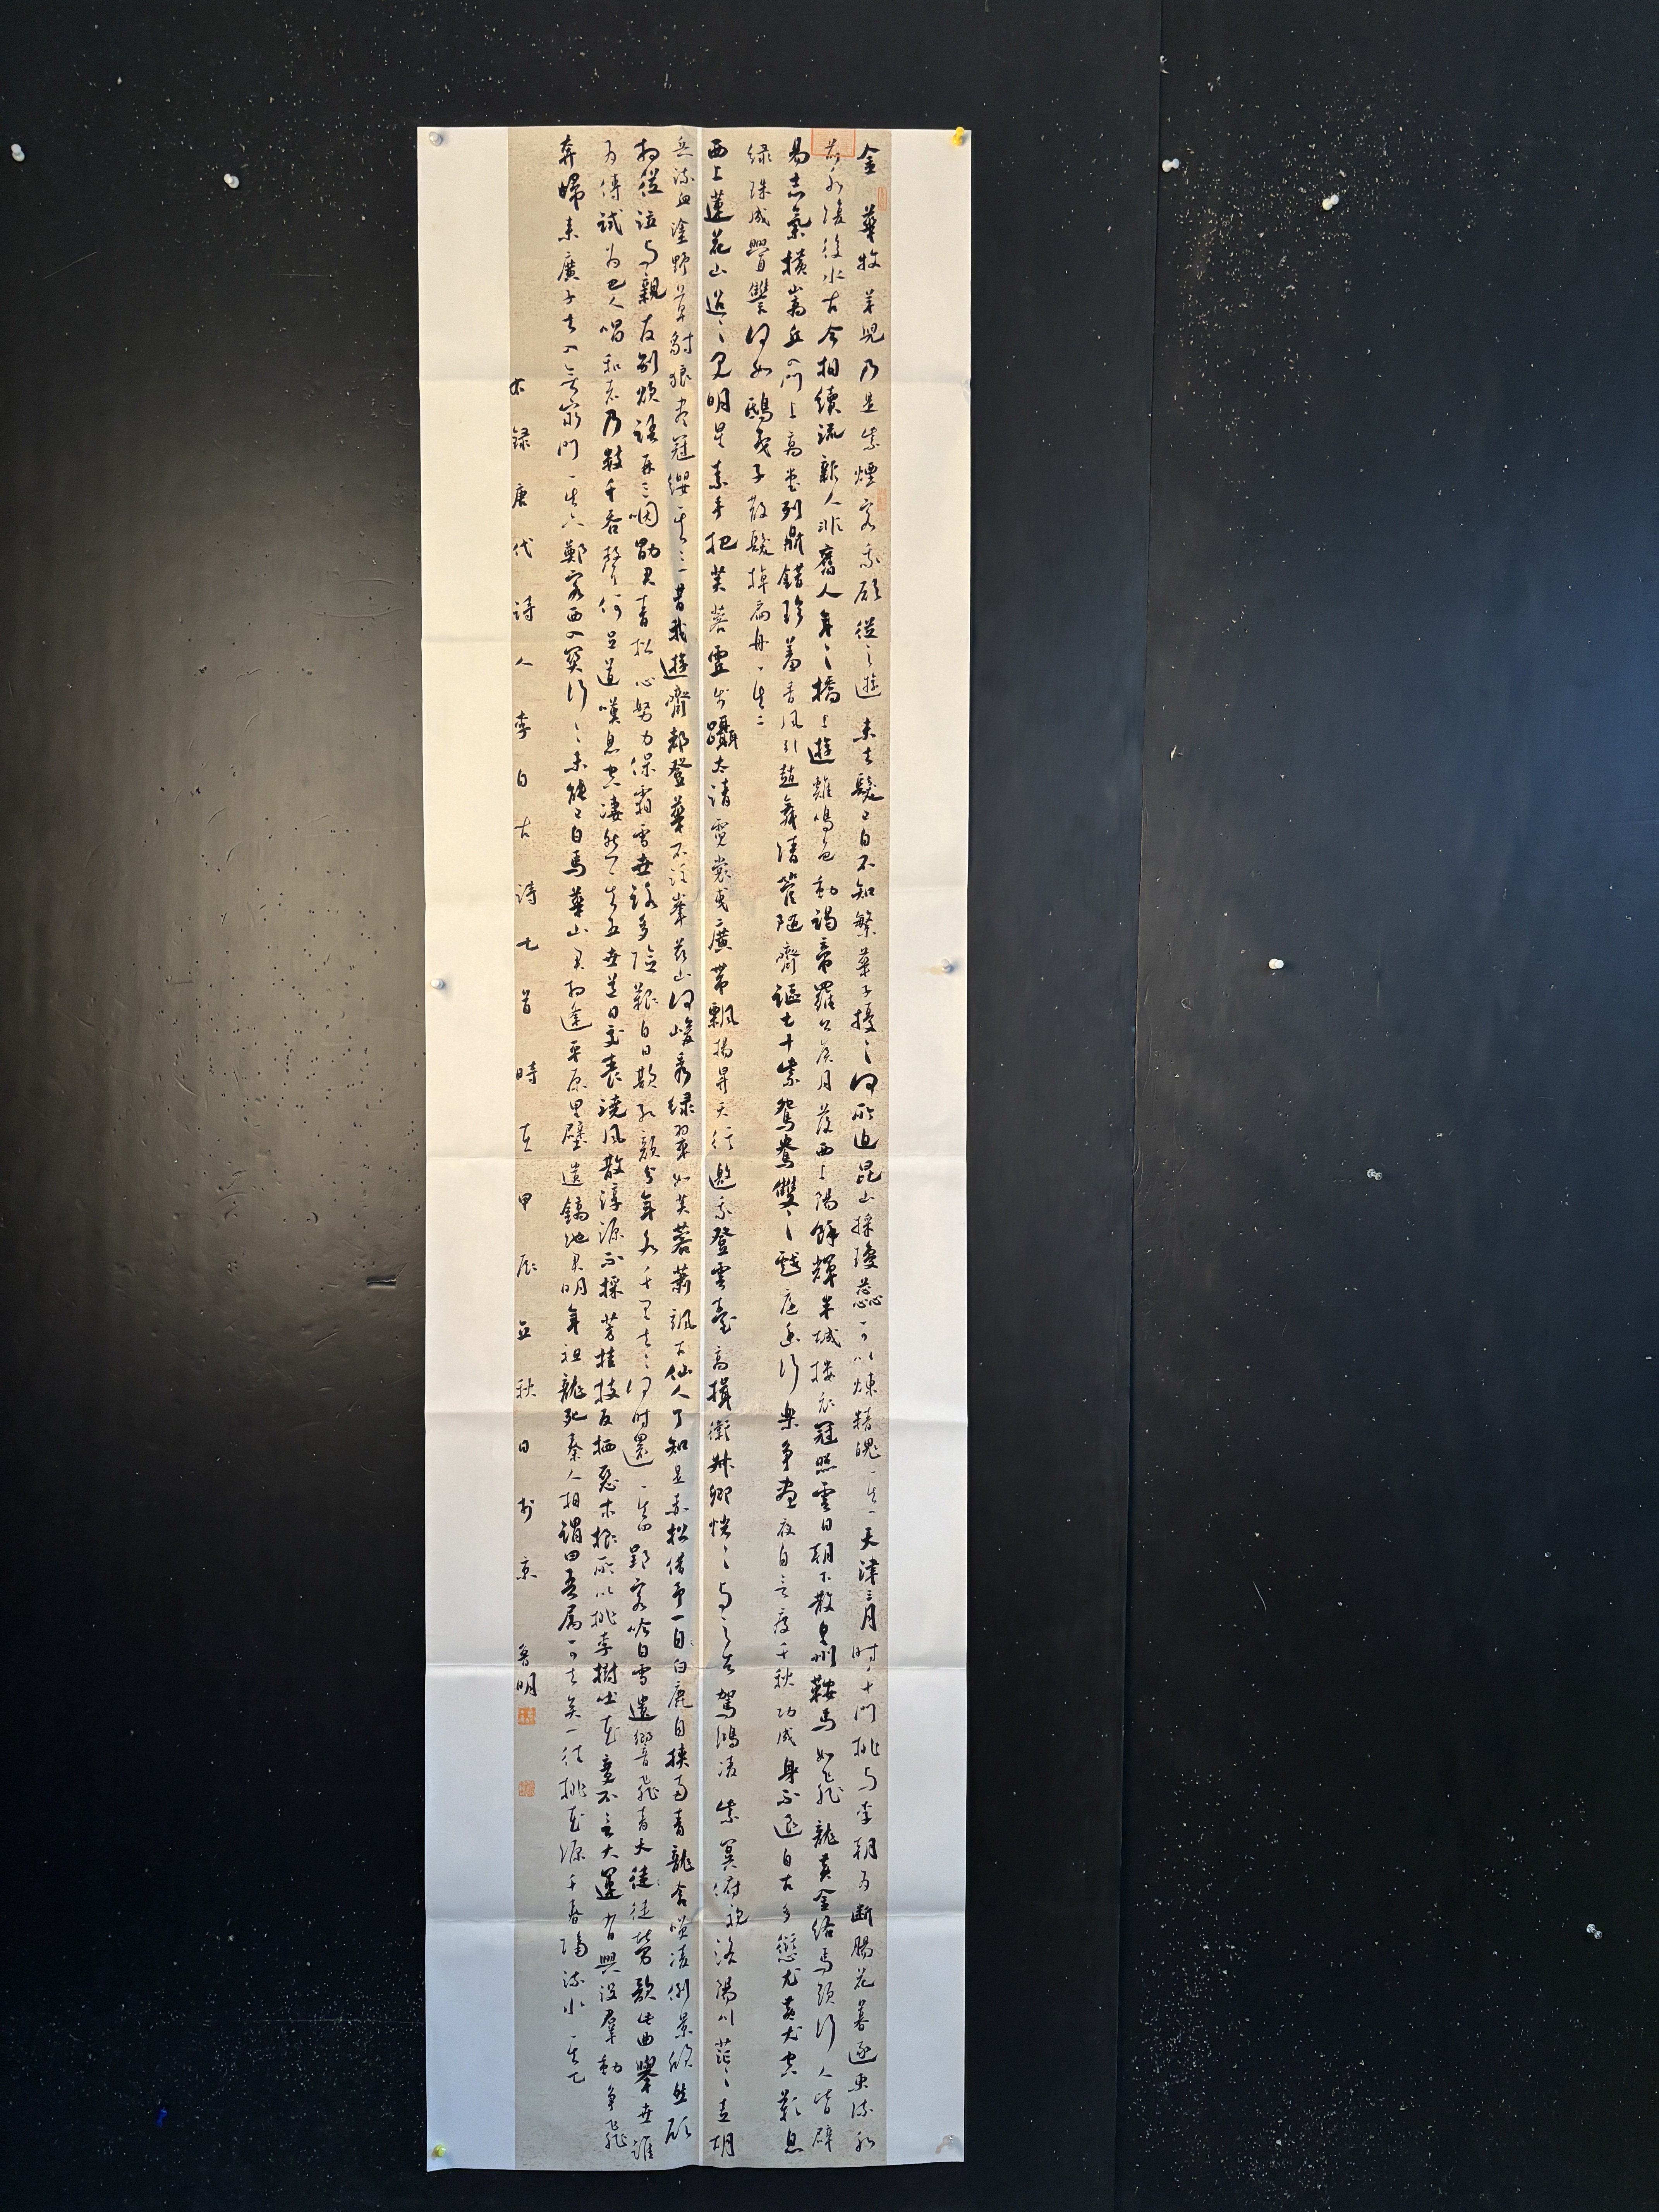 金華牧羊兒乃是紫煙客我願從之遊未去髮已白不知繁華子擾〻何所迫昆山採瓊蕊可以煉精魄其一天津三月時千門桃與李朝為斷腸花暮逐東流水
前水復後水古今相續流新人非舊人年〻橋上遊雞鳴色動謁帝羅公侯月落西上陽餘輝半城樓衣冠照雲日朝下散皇州鞍馬如飛龍黃金絡馬頭行人皆辟
易志氣橫嵩丘入門上高堂列鼎錯珍羞香風引趙舞清管隨齊謳七十紫鴛鴦雙〻戲庭幽行樂爭晝夜自言度千秋功成身不退自古多愆尤黃犬空歎息
綠珠成釁讎何如鴟夷子散髮掉扁舟其二
西上蓮花山迢〻見明星素手把芙蓉虛步躡太清霓裳曳廣帶飄揚昇天行邀我登雲臺高揖衛叔卿恍〻與之去駕鴻凌紫冥俯視洛陽川茫〻走胡
兵流血塗野草豺狼盡冠纓其三昔我遊齊都登華不注峯茲山何峻秀綠翠如芙蓉蕭颯古仙人了知是赤松借予一白鹿自挾兩青龍含笑凌倒景欣然願
相從泣與親友別欲語再三咽勖君青松心努力保霜雪世路多險艱白日欺紅顏分手各千里去〻何時還其四郢客吟白雪遺響飛青天徒勞歌此曲舉世誰
為傳試為巴人唱和者乃數千吞聲何足道嘆息空凄然其五世道日交喪澆風散淳源不採芳桂枝反栖惡木根所以桃李樹吐花竟不言大運有興沒羣動爭飛
奔歸來廣子去入無窮門其六鄭客西入關行〻未能已白馬華山君相逢平原里璧遺鎬池君明年祖龍死秦人相謂曰吾属可去矣一往桃花源千春隔流水其七
右錄唐代詩人李白古詩七首時在甲辰立秋日於京魯明